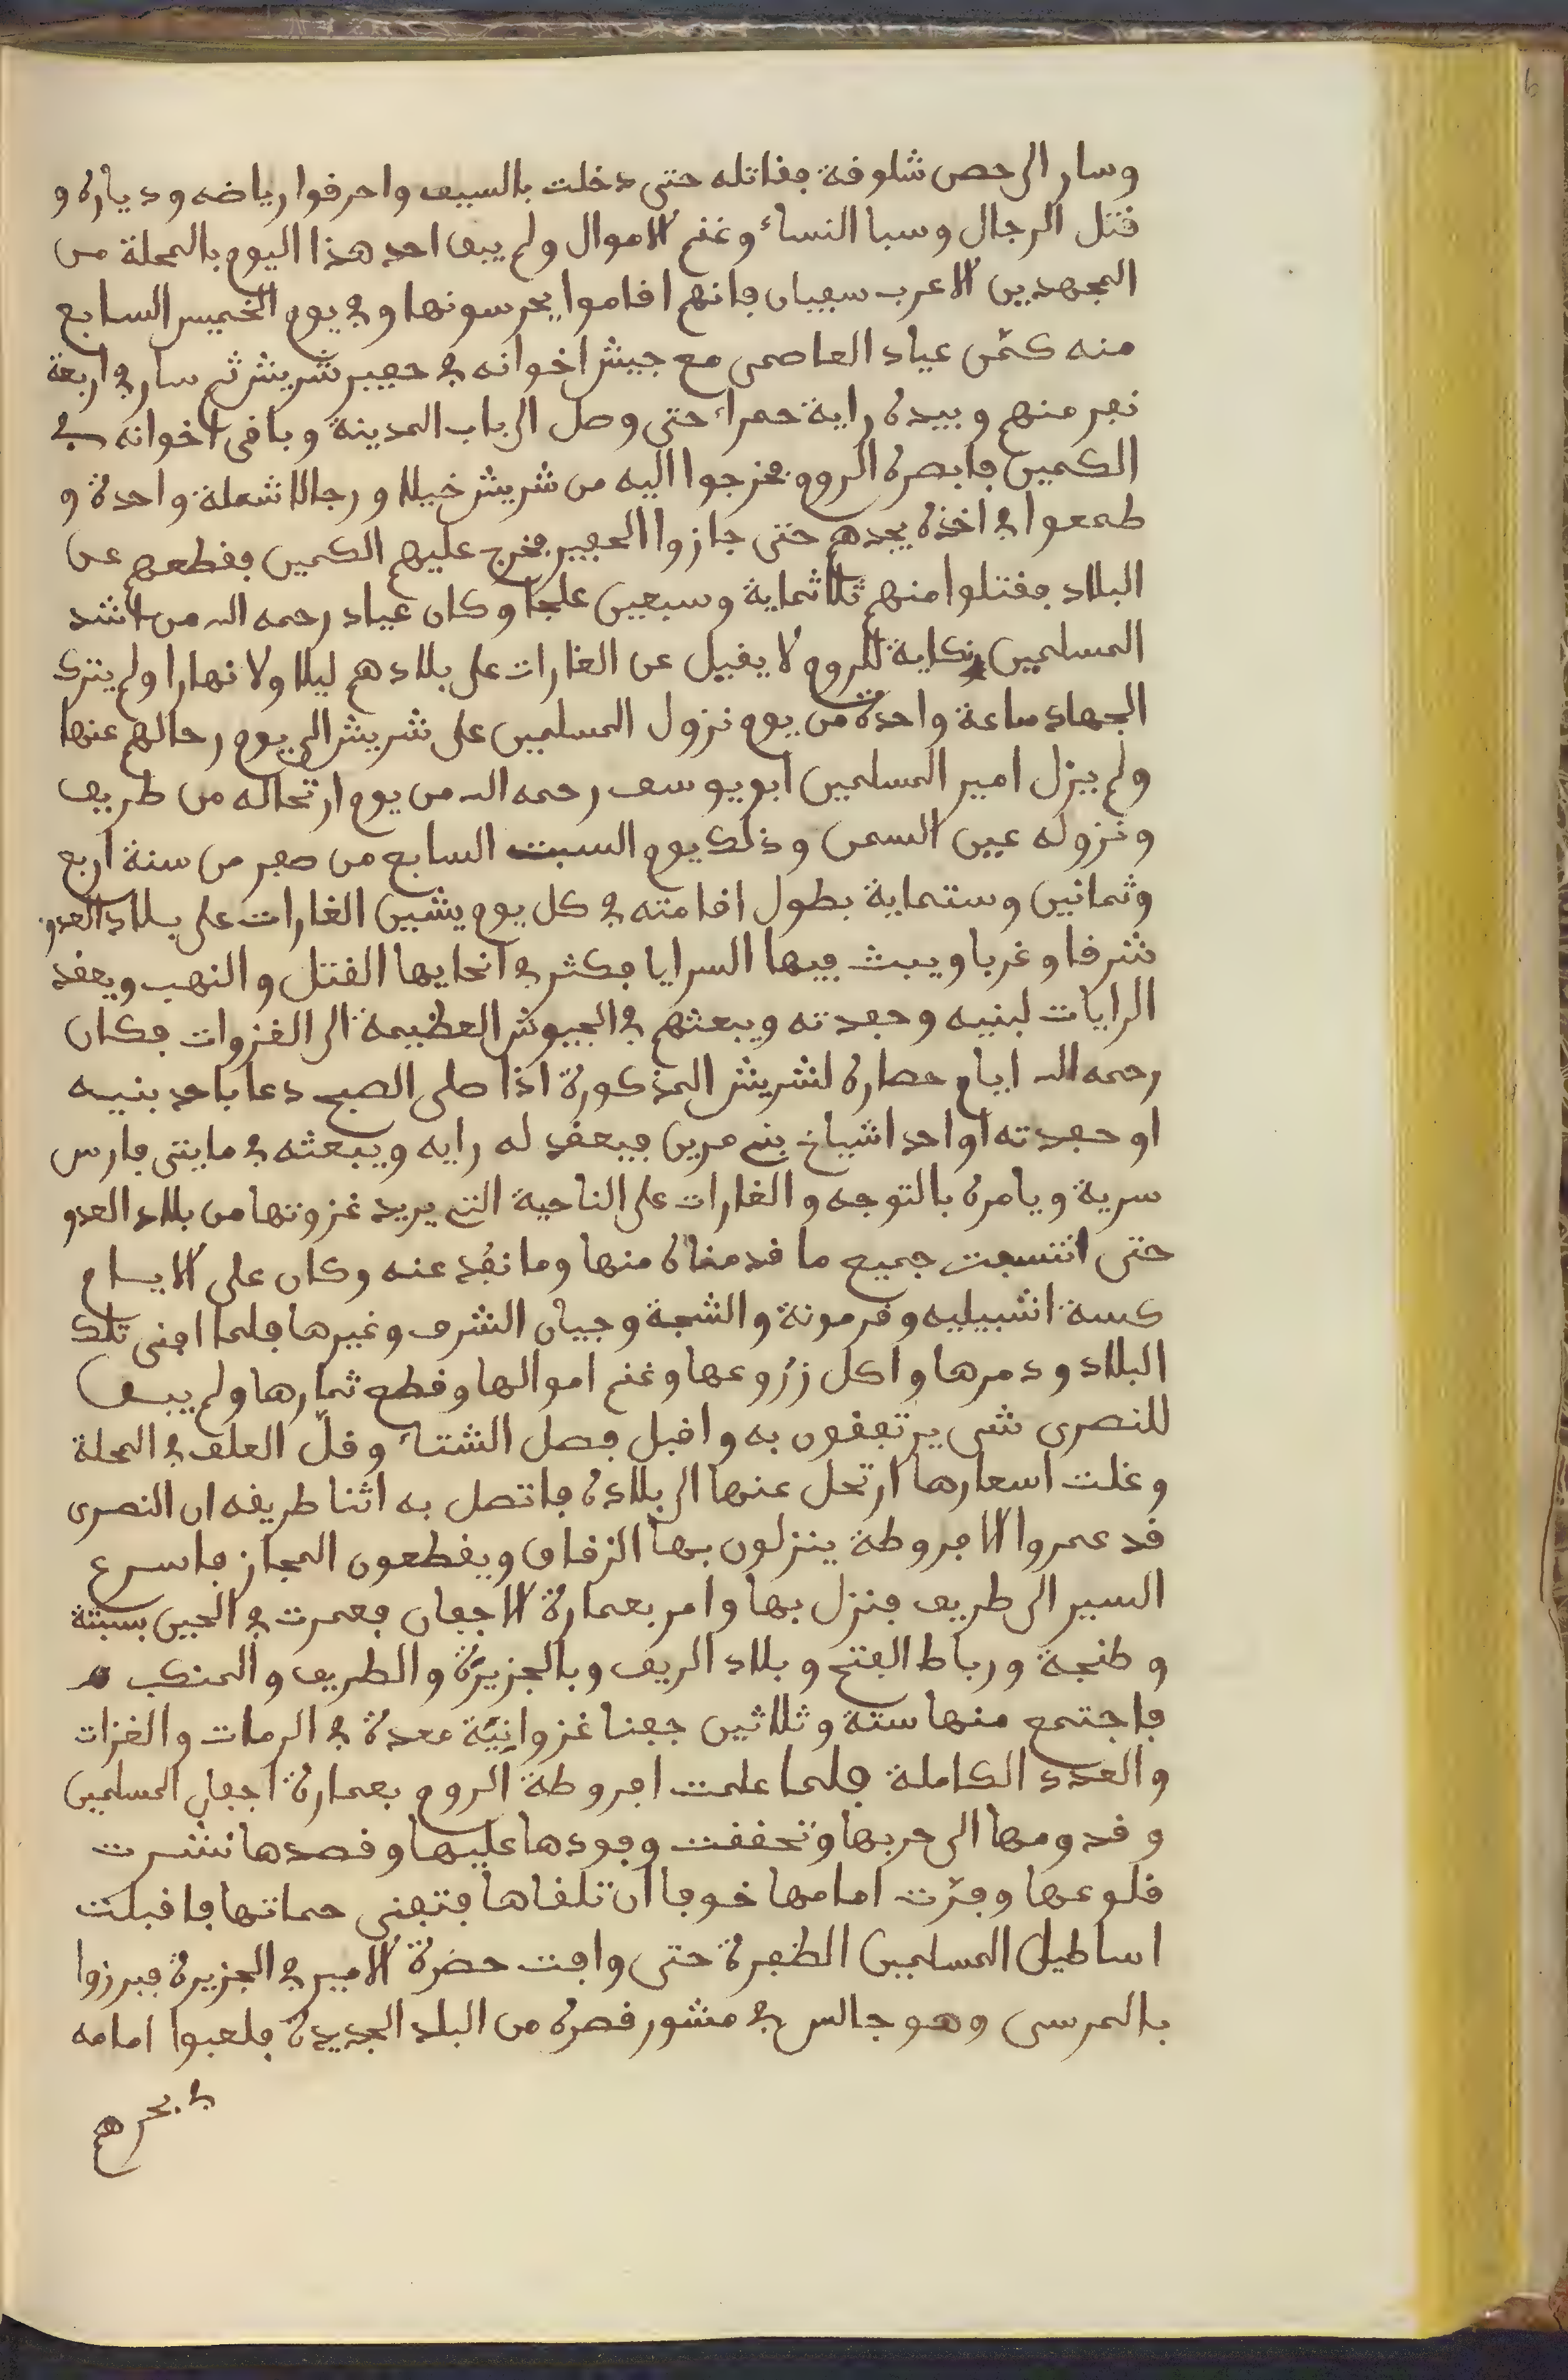 وسار الى حصن شلوقة فقاتله حتى دخلت بالسيف واحرقوا رياضه ودياره و
قتل الرجال وسبا النساء وغنم الاموال ولم يبق احد هذا اليوم بالمحلة من
المجهدين الا عرب سفيان فانهم اقاموا يحرسونها وفي يوم الخميس السابع
منه كمّن عياد العاصمى مع جيش اخوانه في حفير شريش ثم سار في اربعة
نفر منهم وبيده راية حمراء حتى وصل الى باب المدينة وباقى اخوانه في
الكمين فابصره الروم فخرجوا اليه من شريش خيلا ورجالا شعلة واحدة و
طمعوا في اخذه يجدهم حتى جازوا الحفير فخرج عليهم الكمين فقطعهم عن
البلاد فقتلوا منهم ثلاثماية وسبعين علجا وكان عياد رحمه الله من اشد
المسلمين نكاية للروم لا يفيل عن الغارات على بلادهم ليلا ولا نهارا ولم يترك
الجهاد ساعة واحدة من يوم نزول المسلمين على شريش الى يوم رحالهم عنها
ولم يزل امير المسلمين ابو يوسف رحمه الله من يوم ارتحاله من طريف
ونزوله عين السمن وذلك يوم السبت السابع من صفر من سنة اربع
وثمانين وستماية بطول اقامته في كل يوم يشين الغارات على بلاد العدو
شرقا وغربا ويبث فيها السرايا فكثر في انحايها القتل والنهب ويعقد
الرايات لبنيه وحفدته ويبعثهم في الجيوش العظيمة الى الغزوات فكان
رحمه الله ايام حصاره لشريش المذكورة اذا صلى الصبح دعا باحد بنيه
او حفدته او احد اشياخ بني مرين فيعقد له رايه ويبعثه في مايتى فارس
سرية ويامره بالتوجه والغارات على الناحية التي يريد غزوتها من بلاد العدو
حتى انتسفت جميع ما قدمناه منها وما نفد عنه وكان على الايسام
كسة اشبيليه وقرمونة والشجة وجيان الشرف وغيرها فلما افنى تلك
البلاد ودمرها واكل زروعها وغنم اموالها وقطع ثمارها ولم يبق
للنصرى شى يرتفقون به واقبل فصل الشتاء وقلّ العلف في المحلة
وغلت اسعارها ارتحل عنها الى بلاده فاتصل به اثنا طريقه ان النصرى
قد عمروا الافروطة ينزلون بها الزقاق ويقطعون المجاز فاسرع
السير الى طريف فنزل بها وامر بعمارة الاجفان فعمرت في الحين بسبتة
وطنجة ورباط الفتح وبلاد الريف وبالجزيرة والطريف والمنكب
فاجتمع منها ستة وثلاثين جفنا غزوانيّة معدة في الرمات والغزات
والعدد الكاملة فلما علمت افروطة الروم بعمارة اجفان المسلمين
وقدومها الى حربها وتحققت وفودها عليها وقصدها نشرت
قلوعها وفرّت امامها خوفا ان تلقاها فتفنى حماتها فاقبلت
اساطيل المسلمين الظفرة حتى وافت حضرة الامير في الجزيرة فبرزوا
بالمرسى وهو جالس في مشور قصره من البلد الجديدة فلعبوا امامه
في بحرهم